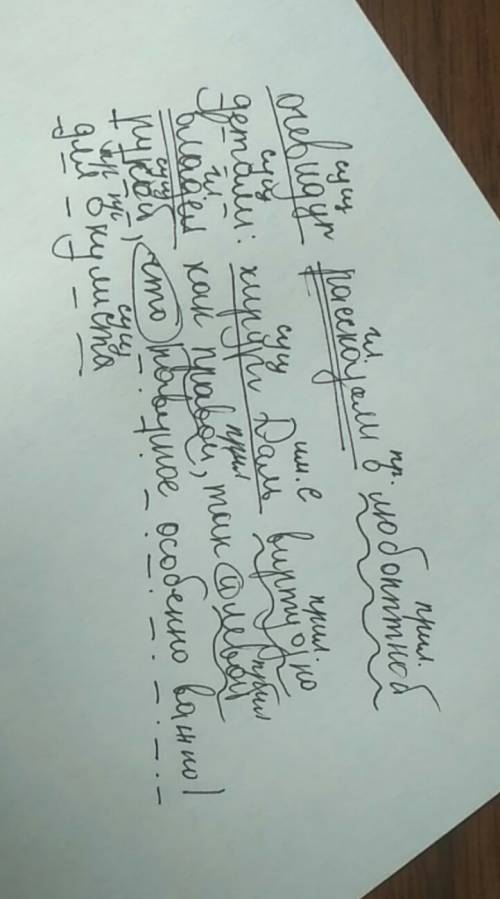 сущ гл. пр. прил.
очевидцы рассказали о любопытной
сущ сущ им. с прил. но
детали: хирург Даль виртуо/но
гл. прил прил
владел как правой, так и левой
сущ
рукой, что наверное особенно важно!
пр сущ
для окулиста